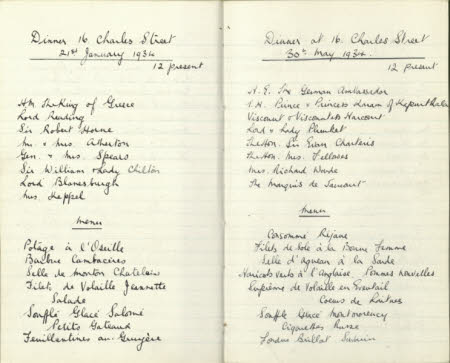 Dinner 16 Charles Street
21st January 1934
12 present
HM The King of Greece
Lord Reading
Sir Robert Horne
Mr. & Mrs. Atherton
Gen. & Mrs. Spears
Sir William & Lady Chilton
Lord Blanesburgh
Mrs. Keppel
Menu
Potage à l'Oseille
Barbue Cambacérès
Selle de Mouton Chatelain
Filets de Volaille Jeannette
Salade
Soufflé Glacé Salomé
Petits Gateaux
Feuillantines au Gruyère
Dinner at 16. Charles Street
30th May 1934.
12 present
H.E. The German Ambassador
T.H. Prince & Princess Karam of Kapurthala
Viscount & Viscountess Harcourt
Lord & Lady Plunket
The Hon. Sir Evan Charteris
The Hon. Mrs. Fellowes
Mrs. Richard Warde
The Marquis de
Menu
Consommé Réjane
Filets de Sole à la Bonne Femme
Selle d'Agneau à la Sarde
Haricots Verts à l'Anglaise Pommes Nouvelles
Suprême de Volaille en Eventail
Coeurs de Laitues
Soufflé Glacé Montmorency
Cigarettes Russe
Fondus Brillat Savarin